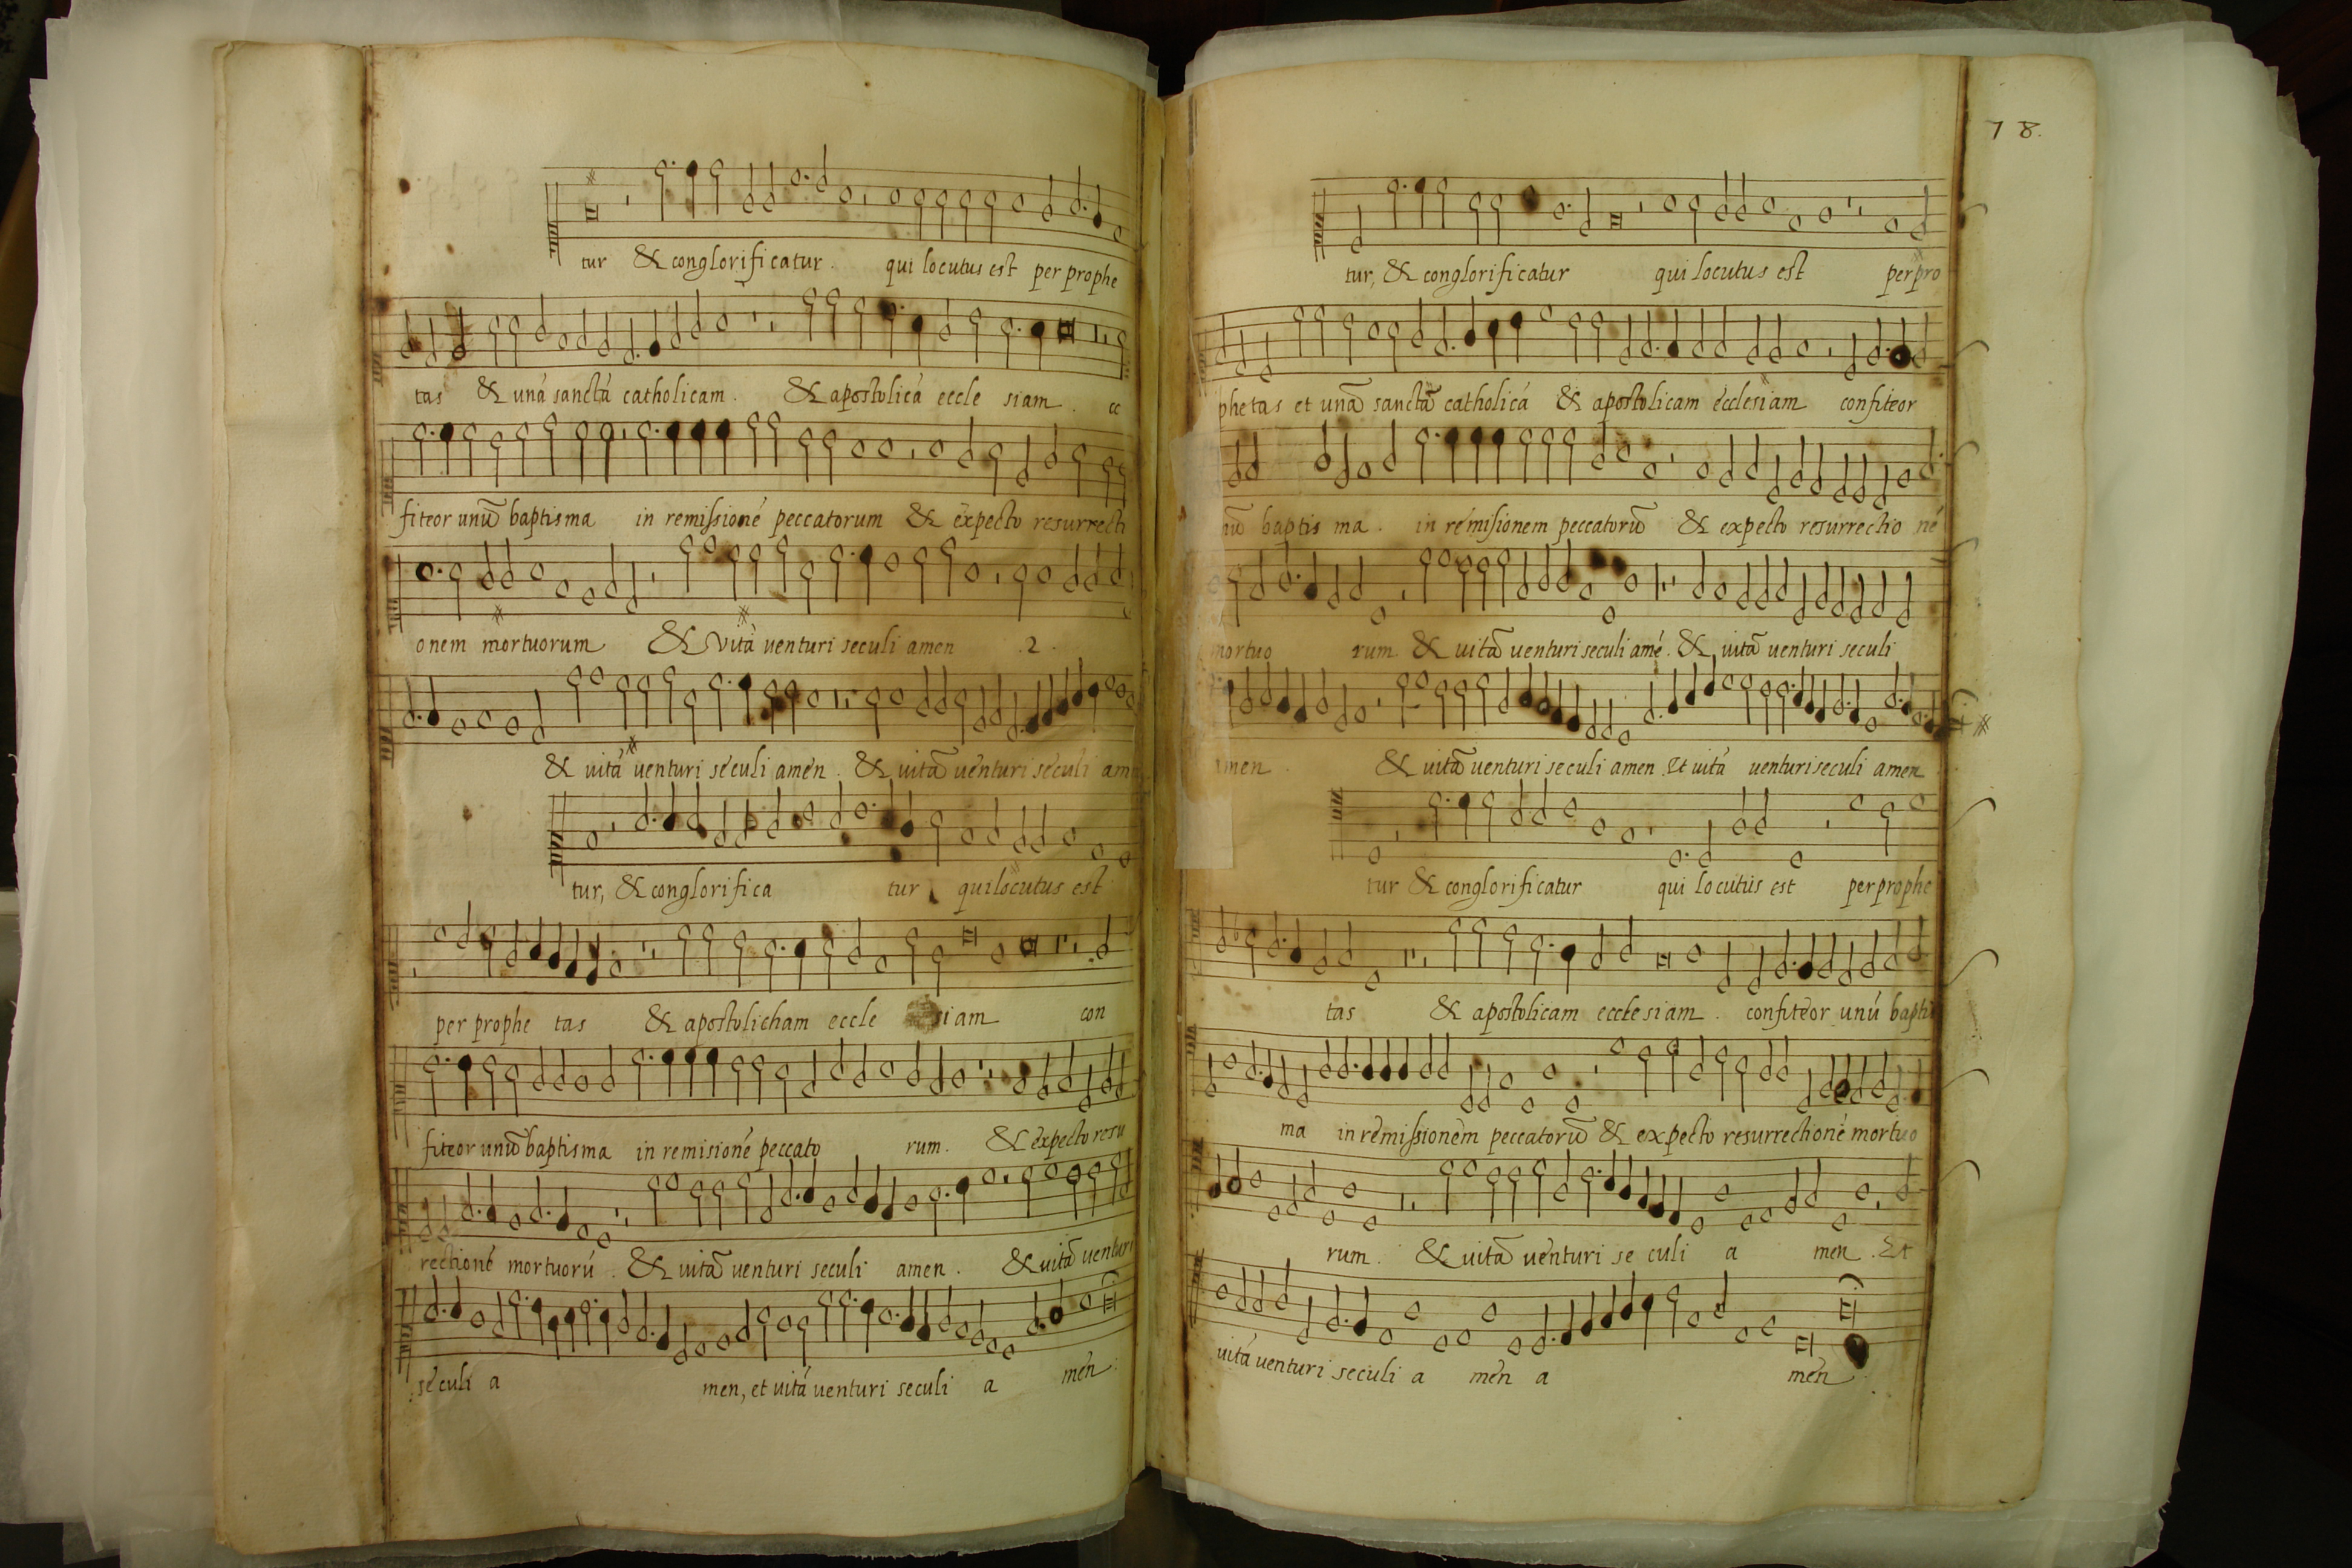 tur & conglorificatur. qui locutus est per prophe
tas & uná sanctá catholicam. & apostolicá eccle siam.
fiteor unũ baptisma in remissioné peccatorum & expecto resurrecti
onem mortuorum & vitá venturi seculi amen .2.
& uitá uenturi seculi amen. & uitã uenturi seculi am
tur, & conglorifica tur qui locutus est
per prophe tas & apostolicham eccle siam con
fiteor unũ baptisma in remisioné peccato rum. & expecto resu
rectioné mortuorú. & uitã uenturi seculi amen. & uitã uenturi
seculi a men, et uitá uenturi seculi a men.
78.
tur, & conglorificatur qui locutus est per pro
phetas et unã sanctã catholicá & apostolicam ecclesiam confiteor
baptis ma. in remisionem peccatorũ & expecto resurrectio né
mortuo rum & uitã uenturi seculi amé. & uitã uenturi seculi
amen. & uitã uenturi seculi amen. Et uitá uenturi seculi amen
tur & conglorificatur qui locutus est per prophe
tas & apostolicam ecclesiam. confiteor unú baptis
ma in remissionem peccatorũ & expecto resurrectioné mortuo
rum. & uitã uenturi se culi a men. Et
uitá uenturi seculi a men a men